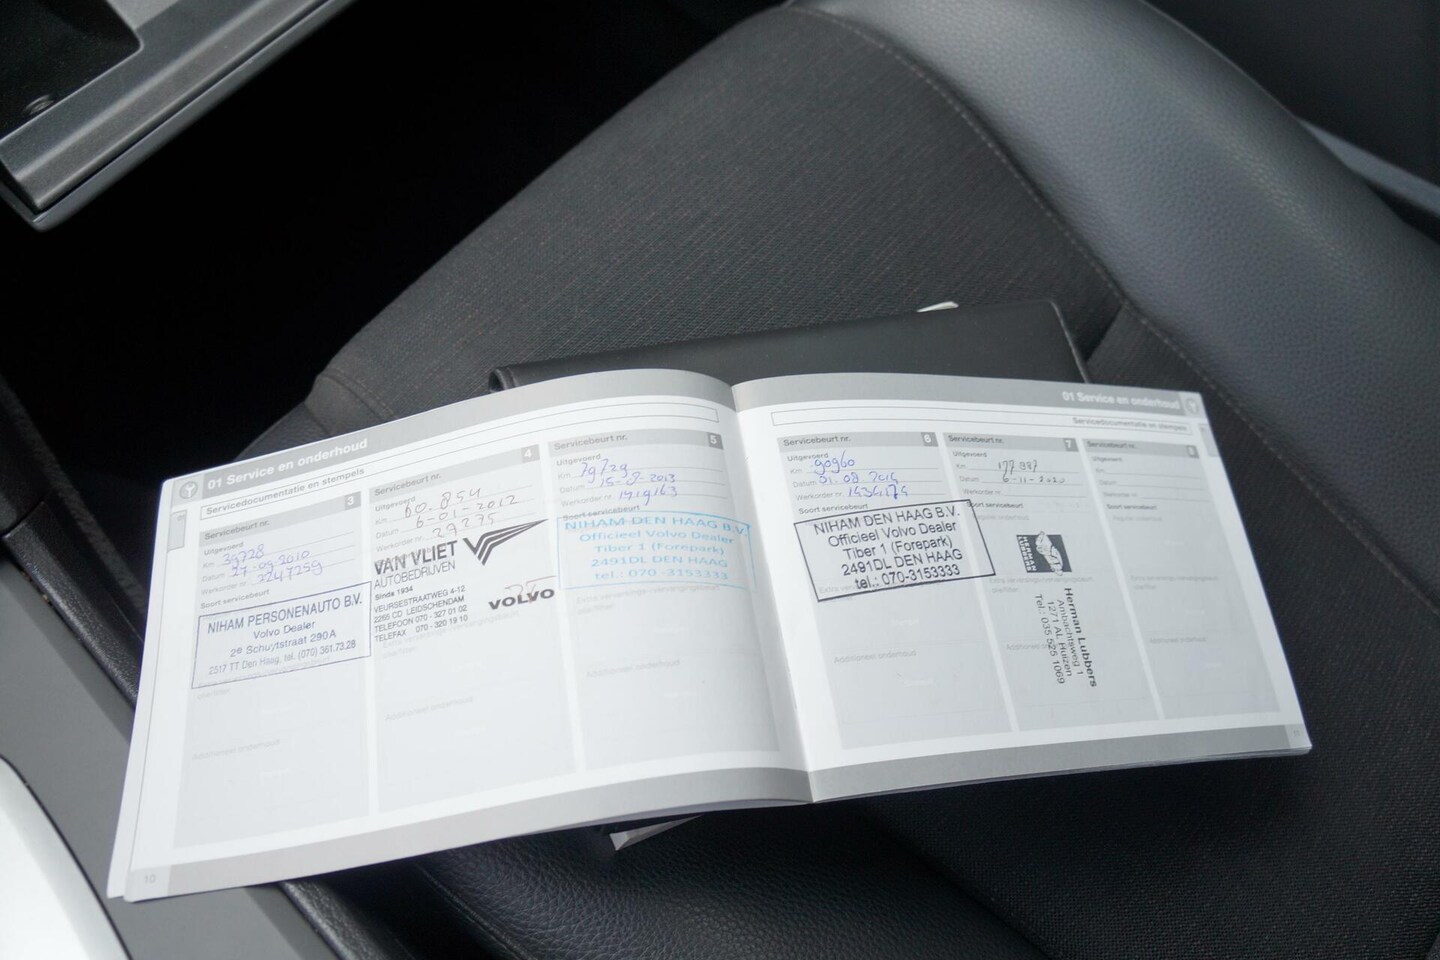 01 Service en onderhoud
Servicedocumentatie en stempels
Servicebeurt nr. 3
Uitgevoerd
Km 39728
Datum 27-09-2010
Werkorder nr. 2247259
Soort servicebeurt
NIHAM PERSONENAUTO B.V.
Volvo Dealer
2e Schuytstraat 290A
2517 TT Den Haag, tel. (070) 361.73.28
Additioneel onderhoud
Servicebeurt nr. 4
Uitgevoerd
Km 60.854
Datum 6-01-2012
Werkorder nr. 29275
VAN VLIET
AUTOBEDRIJVEN
Sinds 1934
VEURSESTRAATWEG 4-12
2265 CD LEIDSCHENDAM
TELEFOON 070 - 327 01 02
TELEFAX 070 - 320 19 10
VOLVO
Additioneel onderhoud
Servicebeurt nr. 5
Uitgevoerd
Km 79729
Datum 15-08-2013
Werkorder nr. 1419163
Soort servicebeurt
NIHAM DEN HAAG B.V.
Officieel Volvo Dealer
Tiber 1 (Forepark)
2491DL DEN HAAG
tel.: 070-3153333
Additioneel onderhoud
10
01 Service en onderhoud
Servicedocumentatie en stempels
Servicebeurt nr. 6
Uitgevoerd
Km 90960
Datum 01.08.2014
Werkorder nr. 1434174
Soort servicebeurt
NIHAM DEN HAAG B.V.
Officieel Volvo Dealer
Tiber 1 (Forepark)
2491DL DEN HAAG
tel.: 070-3153333
Additioneel onderhoud
Servicebeurt nr. 7
Uitgevoerd
Km
Datum
Werkorder nr.
Soort servicebeurt
Herman Lubbers
Ambachtsweg 1
1271 AL Huizen
Tel.: 035 525 1069
Servicebeurt nr. 8
Uitgevoerd
Km
Datum
Werkorder nr.
Soort servicebeurt
Additioneel onderhoud